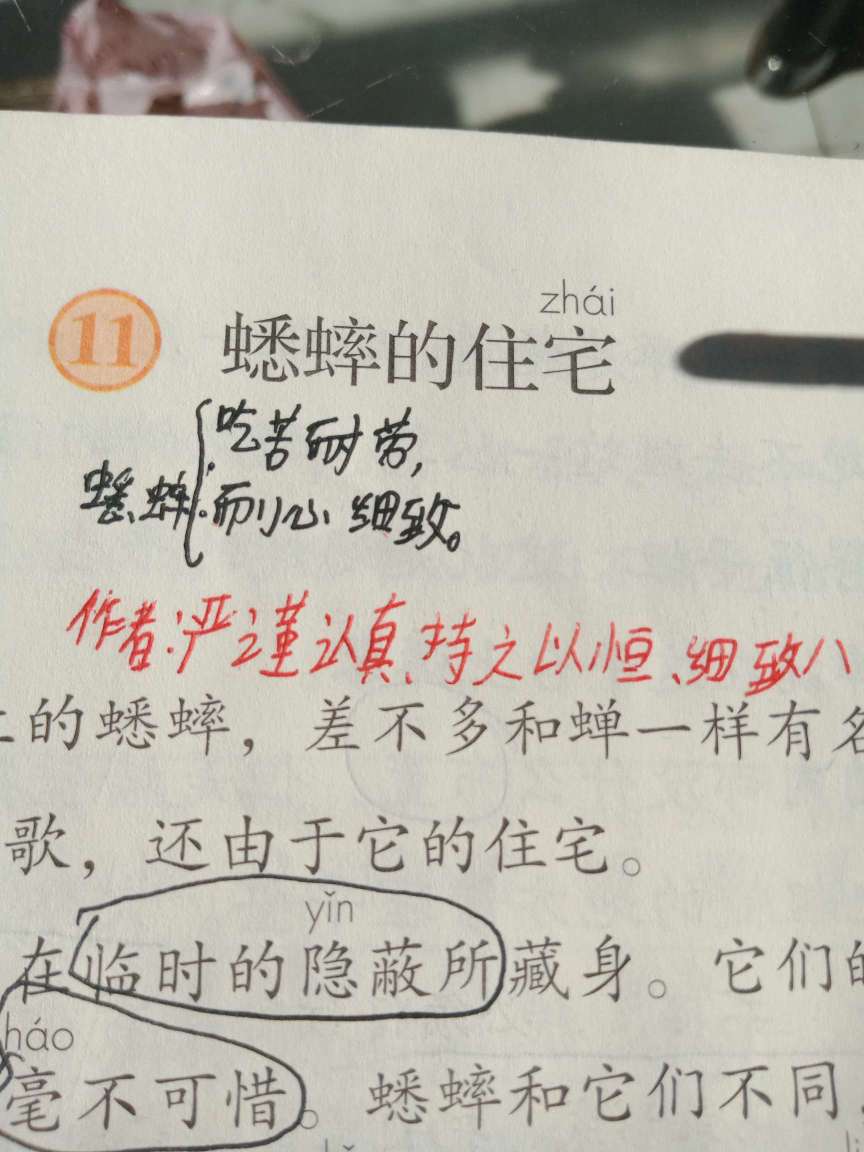 zhái
11 蟋蟀的住宅
吃苦耐劳,
蟋蟀
而小心、细致。
作者:严谨认真、持之以恒、细致
的蟋蟀，差不多和蝉一样有名
歌，还由于它的住宅。
yǐn
在临时的隐蔽所藏身。它们的
háo
毫不可惜。蟋蟀和它们不同，